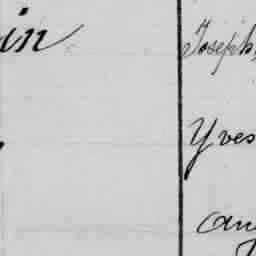 in
Joseph,
Yves